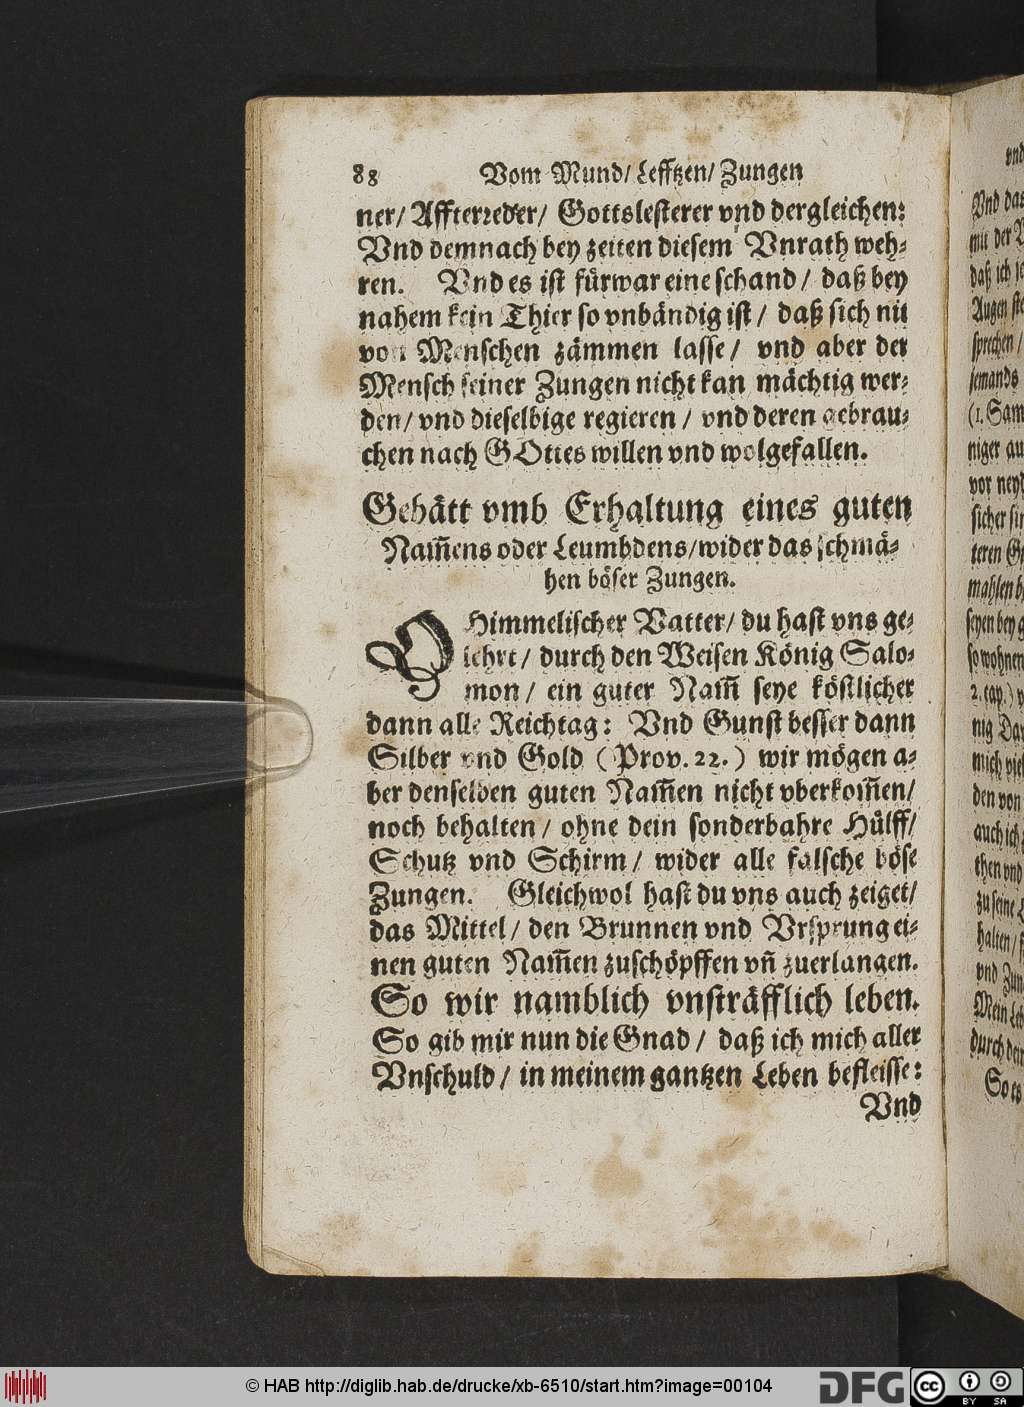 88 Vom Mund/ Lefftzen/ Zungen
ner/ Affterreder/ Gottslesterer vnd dergleichen:
Vnd demnach bey zeiten diesem Vnrath weh-
ren. Vnd es ist fürwar eine schand/ daß bey
nahem kein Thier so vnbändig ist/ daß sich nit
von Menschen zämmen lasse/ vnd aber der
Mensch seiner Zungen nicht kan mächtig wer-
den/ vnd dieselbige regieren/ vnd deren gebrau-
chen nach GOttes willen vnd wolgefallen.
Gebätt vmb Erhaltung eines guten
Nam̃ens oder Leumbdens/ wider das schmä-
hen böser Zungen.
O Himmelischer Vatter/ du hast vns ge-
lehrt/ durch den Weisen König Salo-
mon/ ein guter Nam̃ seye köstlicher
dann alle Reichtag: Vnd Gunst besser dann
Silber vnd Gold (Prov. 22.) wir mögen a-
ber denselben guten Nam̃en nicht vberkom̃en/
noch behalten/ ohne dein sonderbahre Hülff/
Schutz vnd Schirm/ wider alle falsche böse
Zungen. Gleichwol hast du vns auch zeiget/
das Mittel/ den Brunnen vnd Vrsprung ei-
nen guten Nam̃en zuschöpffen vñ zuerlangen.
So wir namblich vnsträfflich leben.
So gib mir nun die Gnad/ daß ich mich aller
Vnschuld/ in meinem gantzen Leben befleisse:
Vnd
vnd
Vnd dat
mit der
daß ich
Augen
sprechen/
jemands
(1. Sam
niger au
vor neyd
sicher
teren
mahlen
seyen bey
so wohnen
2. cap.)
nig Dav
mich
den von
auch ich
then vnd
zu seine
halten/
vnd Zun
Mein Leb
durch
So es
© HAB http://diglib.hab.de/drucke/xb-6510/start.htm?image=00104
DFG
cc
BY SA